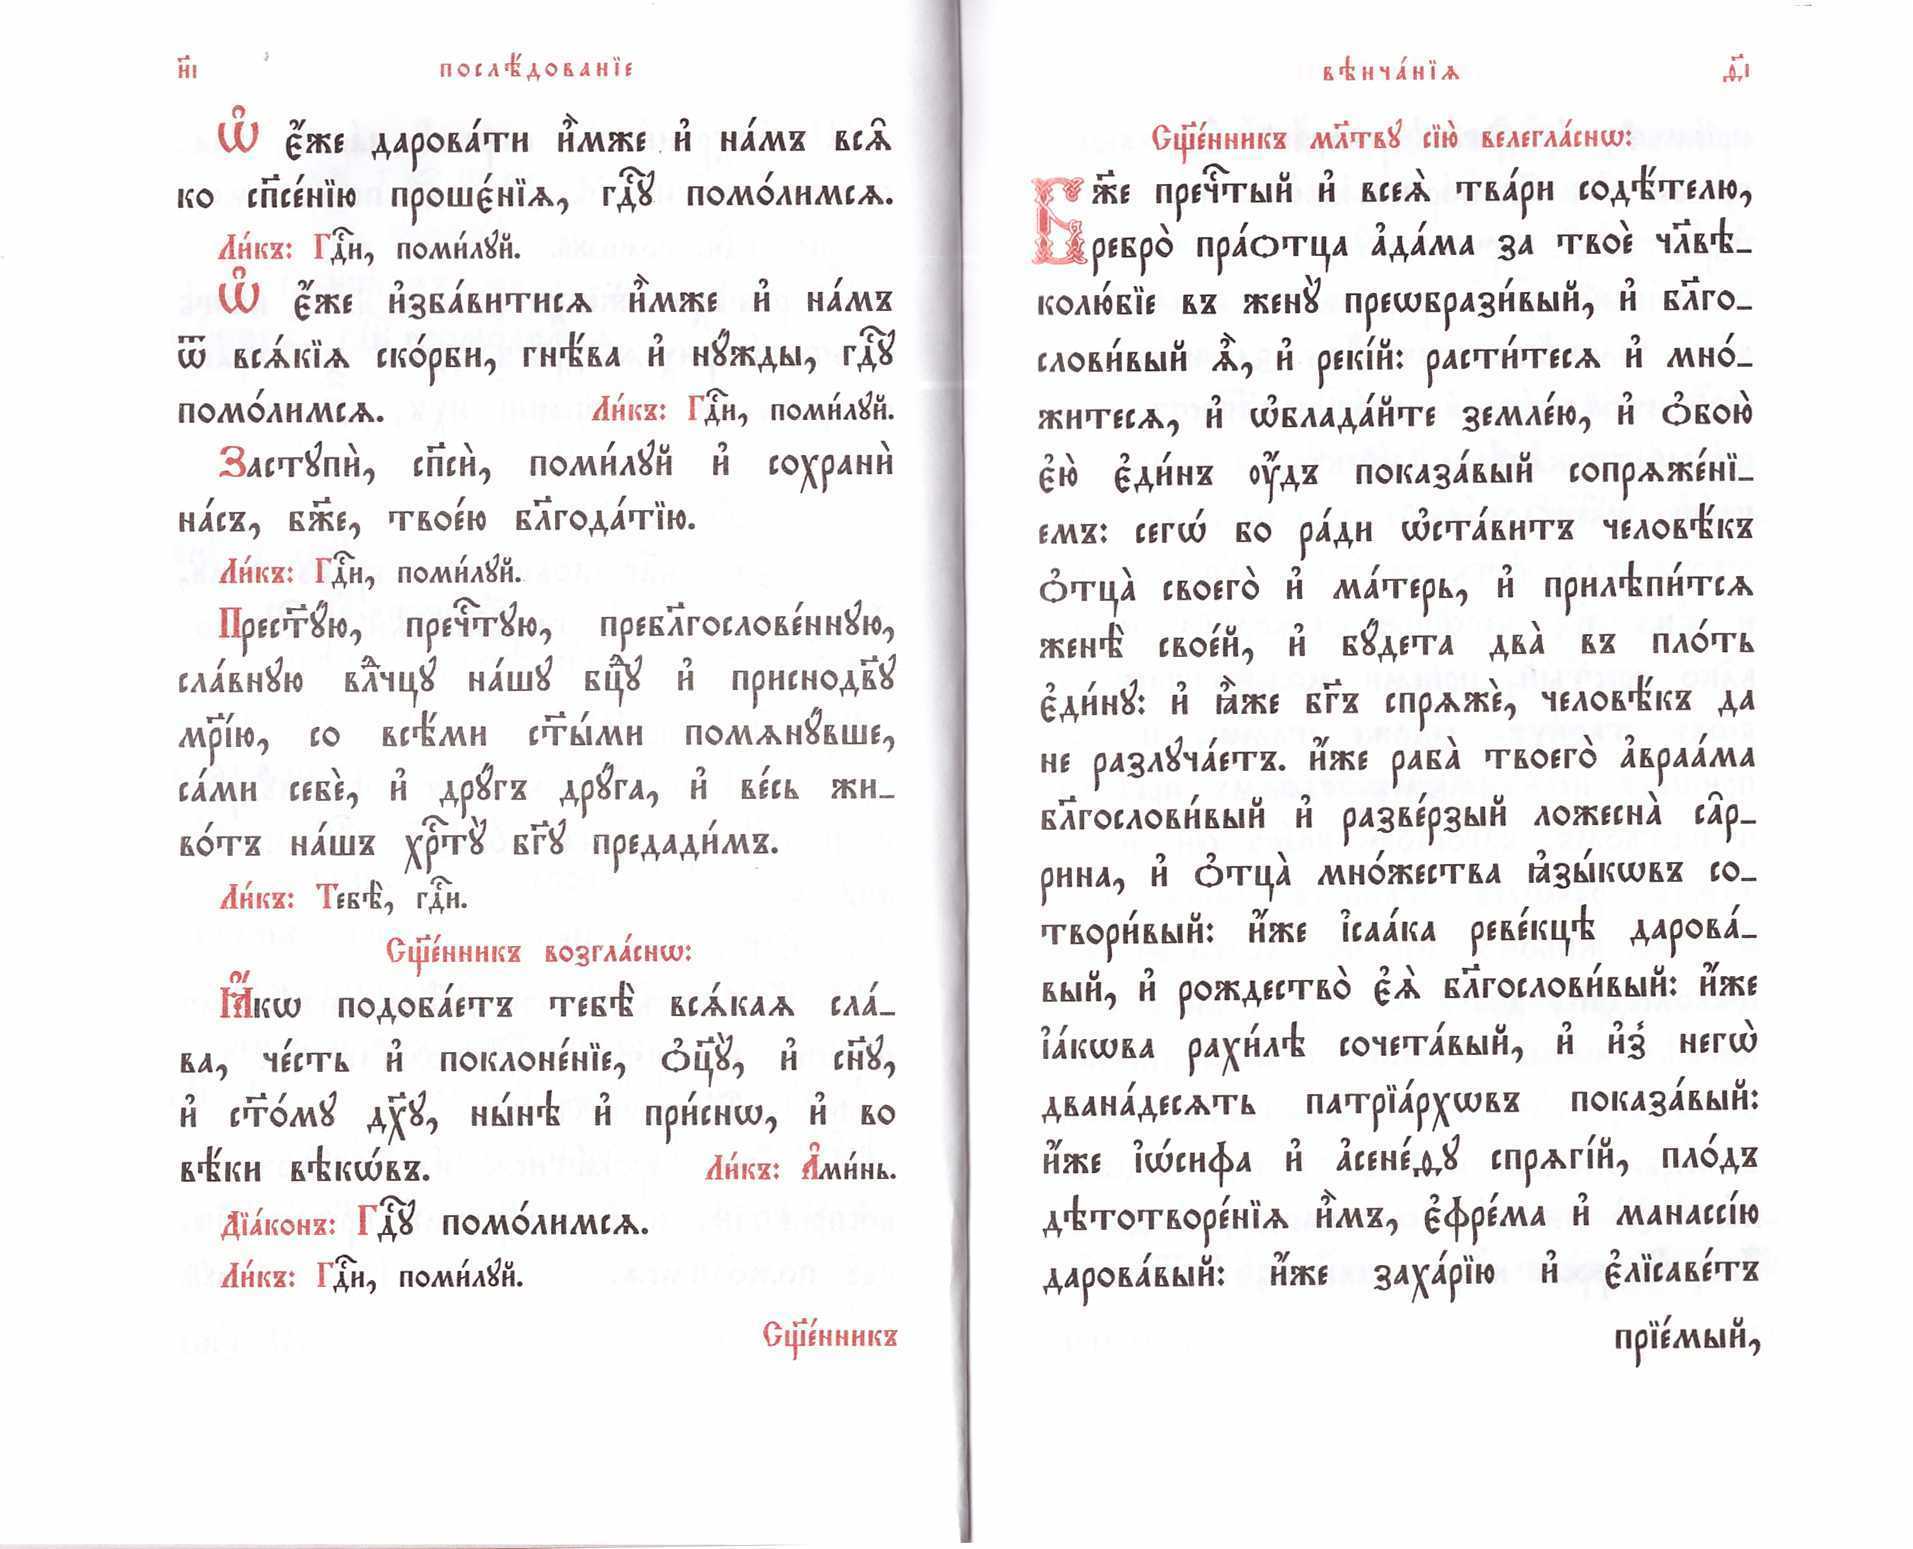 и҃і послѣ́дованїе
Ѡ҆ є҆́же дарова́ти и҆̀мже и҆ на́мъ всѧ̑
ко сп҃се́нїю проше́нїѧ, гдⷭ҇ꙋ помо́лимсѧ.
Ли́къ: Гдⷭ҇и, поми́лꙋй.
Ѡ҆ є҆́же и҆зба́витисѧ и҆̀мже и҆ на́мъ
ѿ всѧ́кїѧ ско́рби, гнѣ́ва и҆ нꙋ́жды, гдⷭ҇ꙋ
помо́лимсѧ. Ли́къ: Гдⷭ҇и, поми́лꙋй.
Застꙋпѝ, сп҃сѝ, поми́лꙋй и҆ сохранѝ
на́съ, бж҃е, твое́ю блг҃ода́тїю.
Ли́къ: Гдⷭ҇и, поми́лꙋй.
Прест҃ꙋ́ю, пречⷭ҇тꙋю, преблг҃ослове́ннꙋю,
сла́внꙋю влⷣчцꙋ на́шꙋ бцⷣꙋ и҆ приснодв҃ꙋ
мр҃і́ю, со всѣ́ми ст҃ы́ми помѧнꙋ́вше,
са́ми себѐ, и҆ дрꙋ́гъ дрꙋ́га, и҆ ве́сь жи_
во́тъ на́шъ хрⷭ҇тꙋ̀ бг҃ꙋ предади́мъ.
Ли́къ: Тебѣ̀, гдⷭ҇и.
Сщ҃е́нникъ возгла́снѡ:
Ꙗ҆́кѡ подоба́етъ тебѣ̀ всѧ́каѧ сла́_
ва, че́сть и҆ поклоне́нїе, ѻ҆ц҃ꙋ̀, и҆ сн҃ꙋ,
и҆ ст҃о́мꙋ дх҃ꙋ, ны́нѣ и҆ при́снѡ, и҆ во
вѣ́ки вѣкѡ́въ. Ли́къ: А҆ми́нь.
Дїа́конъ: Гдⷭ҇ꙋ помо́лимсѧ.
Ли́къ: Гдⷭ҇и, поми́лꙋй.
Сщ҃е́нникъ
вѣнча́нїѧ д҃і
Сщ҃е́нникъ мл҃твꙋ сїю̀ велегла́снѡ:
Бж҃е пречⷭ҇тый и҆ всеѧ̀ тва́ри содѣ́телю,
ребро̀ пра́ѻтца а҆да́ма за твоѐ чл҃вѣ_
колю́бїе въ женꙋ̀ преѡбрази́вый, и҆ блг҃о_
слови́вый ѧ҆̀, и҆ реки́й: расти́тесѧ и҆ мно́_
житесѧ, и҆ ѡ҆блада́йте земле́ю, и҆ ѻ҆бою̀
є҆ю̀ є҆ди́нъ ᲂу҆́дъ показа́вый сопрѧже́нї_
емъ: сегѡ́ бо ра́ди ѡ҆ста́витъ человѣ́къ
ѻ҆тца̀ своего̀ и҆ ма́терь, и҆ прилѣпи́тсѧ
женѣ̀ свое́й, и҆ бꙋ́дета два̀ въ пло́ть
є҆ди́нꙋ: и҆ ꙗ҆̀же бг҃ъ спрѧжѐ, человѣ́къ да
не разлꙋча́етъ. и҆́же раба̀ твоего̀ а҆враа́ма
блг҃ослови́вый и҆ разве́рзый ложесна̀ са̑р_
рина, и҆ ѻ҆тца̀ мно́жества ꙗ҆зы́кѡвъ со_
твори́вый: и҆́же і҆саа́ка реве́кцѣ дарова́_
вый, и҆ рождество̀ є҆ѧ̀ блг҃ослови́вый: и҆́же
і҆а́кѡва рахи́лѣ сочета́вый, и҆ и҆з̾ негѡ̀
двана́десѧть патрїа́рхѡвъ показа́вый:
и҆́же і҆ѡ́сифа и҆ а҆сене́ѳꙋ спрѧгі́й, пло́дъ
дѣтотворе́нїѧ и҆̀мъ, є҆фре́ма и҆ манассі́ю
дарова́вый: и҆́же заха́рїю и҆ є҆лїсаве́тъ
прїе́мый,